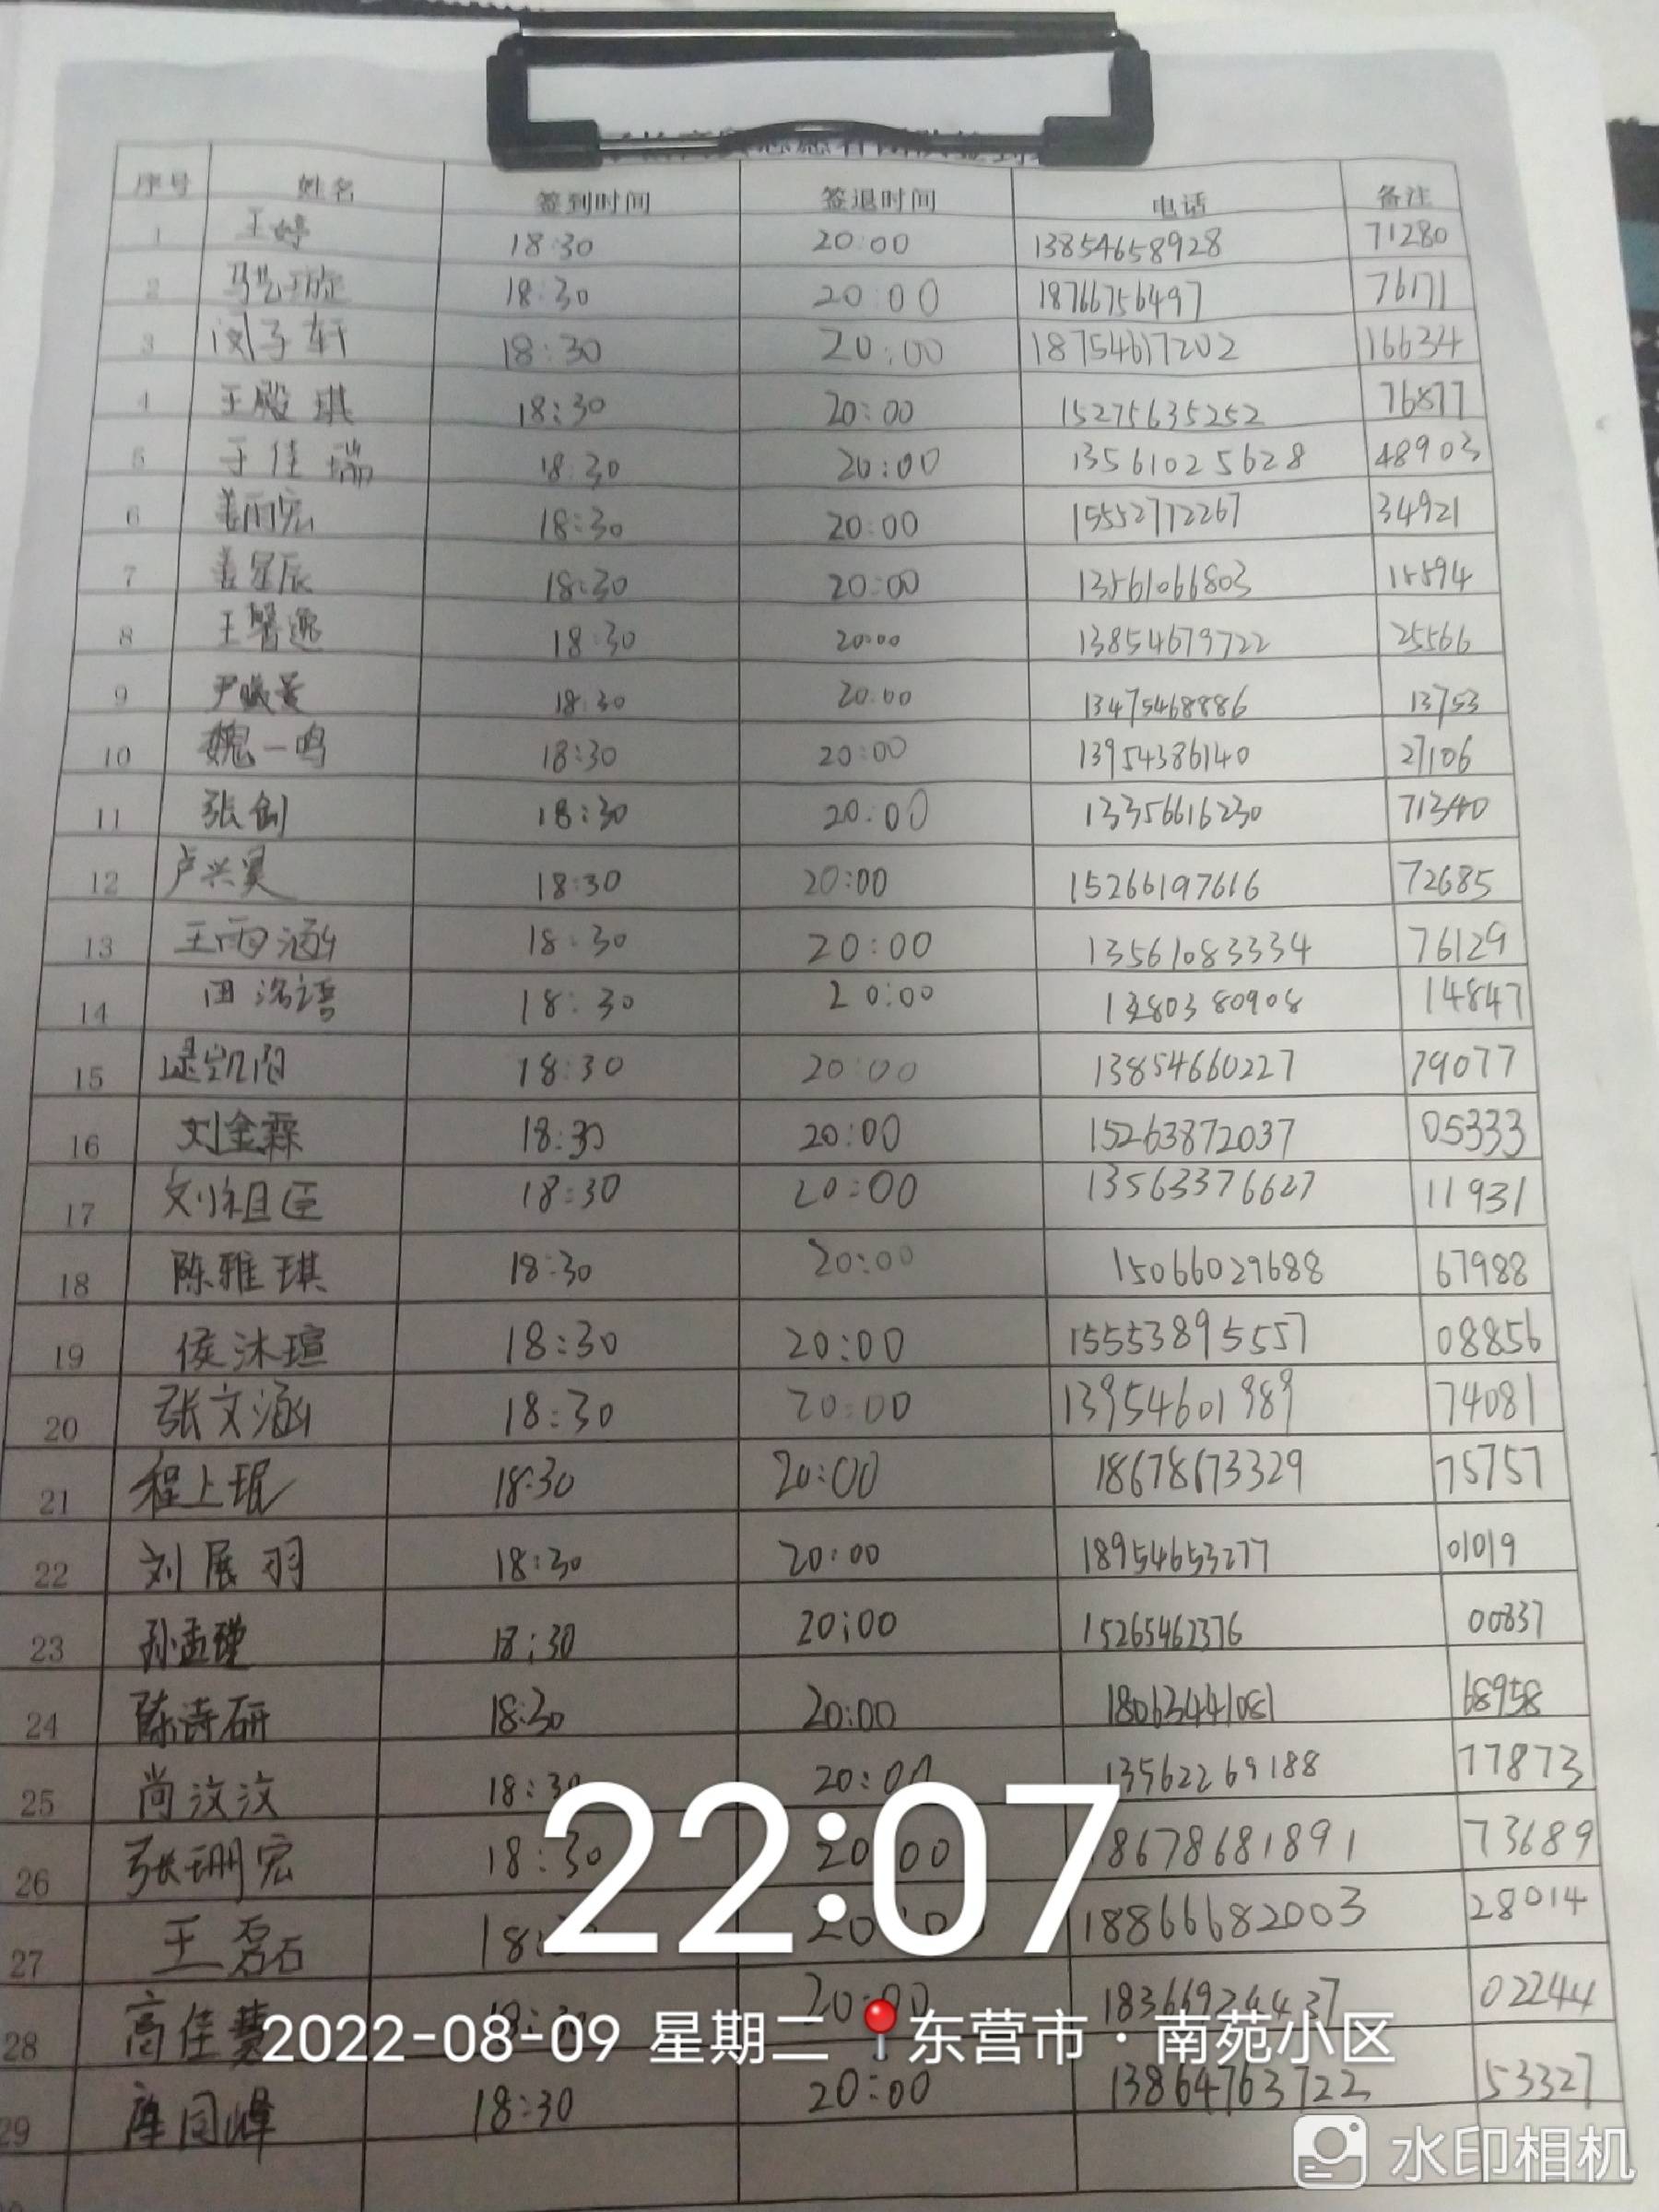 序号 姓名 签到时间 签退时间 电话 备注
1 王婷 18:30 20:00 13854658928 71280
2 18:30 20:00 18766756497 76171
3 闵子轩 18:30 20:00 18754617202 16634
4 王殿琪 18:30 20:00 15275635252 76877
5 于佳瑞 18:30 20:00 13561025628 48903
6 姜雨宏 18:30 20:00 15552712267 34921
7 姜星辰 18:30 20:00 13561066803 15594
8 王馨逸 18:30 20:00 13854679722 25566
9 尹曦蔓 18:30 20:00 13475468886 13753
10 魏一鸣 18:30 20:00 13954386140 27106
11 张创 18:30 20:00 13356616230 71340
12 卢兴昊 18:30 20:00 15266197616 72685
13 王雨涵 18:30 20:00 13561083334 76129
14 田洺语 18:30 20:00 14847
15 逯凯阳 18:30 20:00 13854660227 79077
16 刘金霖 18:30 20:00 15263872037 05333
17 刘祖匡 18:30 20:00 13563376627 11931
18 陈雅琪 18:30 20:00 15066029688 67988
19 侯沐瑄 18:30 20:00 15553895557 08856
20 张文涵 18:30 20:00 13954601989 74081
21 程上珉 18:30 20:00 18678673329 75757
22 刘展羽 18:30 20:00 18954653277 01019
23 孙孟瑾 18:30 20:00 15265462376 00837
24 陈诗研 18:30 20:00 18063441081 68958
25 尚汶汶 18:30 20:00 13562269188 77873
26 张珊宏 18:30 20:00 18678681891 73689
27 王磊石 18:30 20:00 18866682003 28014
28 高佳慧 18:30 20:00 18366924437 02244
29 18:30 20:00 13864763722 53327
22:07
2022-08-09 星期二 东营市·南苑小区
水印相机